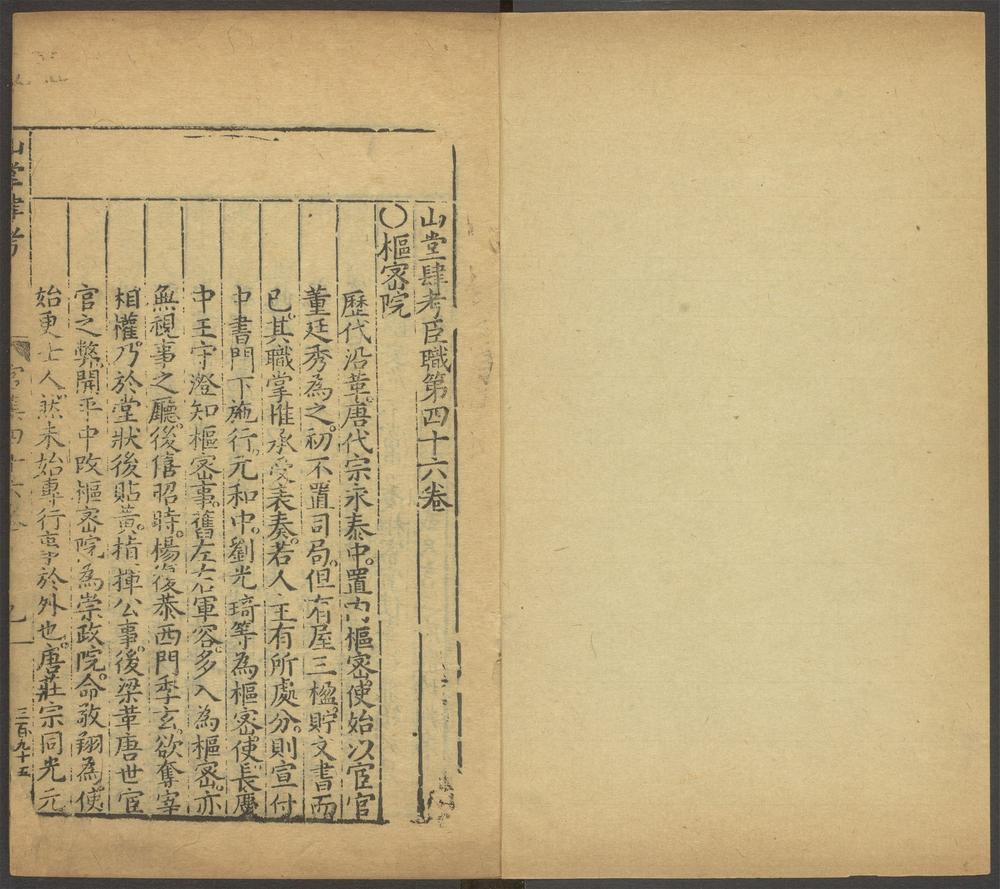 山堂肆考臣職第四十六卷
〇樞密院
歷代沿革唐代宗永泰中。置内樞密使始以宦官
董廷秀為之。初不置司局。但有屋三楹。貯文書而
已。其職掌惟承受表奏。若人主有所處分。則宣付
中書門下施行。元和中。劉光琦等為樞密使。長慶
中王守澄知樞密事。舊左右軍容多入為樞密。亦
無視事之廳。後僖昭時。楊復恭西門季玄。欲奪宰
相權。乃於堂狀後貼黃。指揮公事。後梁革唐世宦
官之弊。開平中改樞密院為崇政院。命敬翔為使。
始更士人。然未始專行事於外也。唐莊宗同光元
山堂肆考
三百九十五